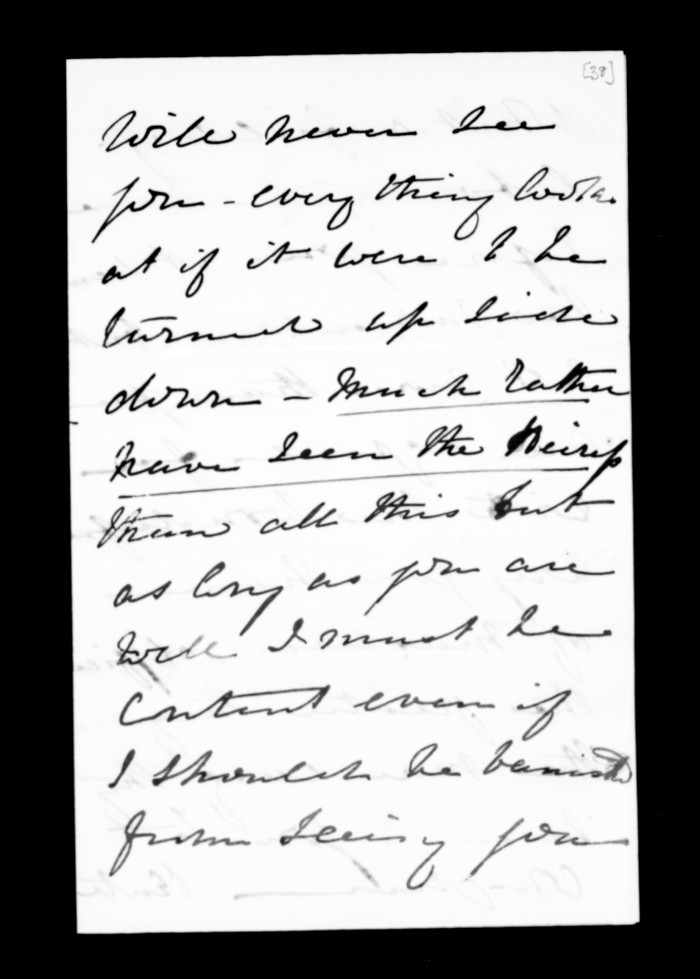 [38]
will never see
you - every thing looks
at if it were to be
turned up side
down - much rather
have seen the
than all this but
as long as you are
well I must be
content even if
I should be banished
from seeing you